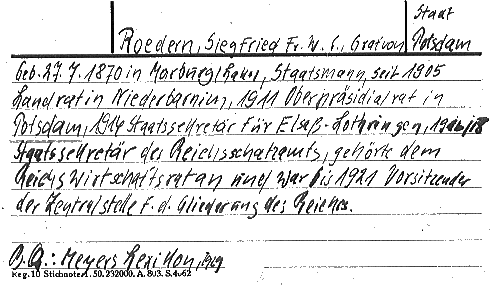 Staat
Roedern, Siegfried Fr. W. E., Graf von Potsdam
Geb. 27. 7. 1870 in Marburg/Lahn, Staatsmann, seit 1905
Landrat in Niederbarnim, 1911 Oberpräsidialrat in
Potsdam, 1914 Staatssekretär für Elsaß-Lothringen, 1916/18
Staatssekretär des Reichsschatzamts, gehörte dem
Reichswirtschaftsrat an und war bis 1921 Vorsitzender
der Zentralstelle f. d. Gliederung des Reiches.
B. Q.: Meyers Lexikon, 1929
Reg. 10 Stichnoter. 50. 232000. A. 803. S. 4.62